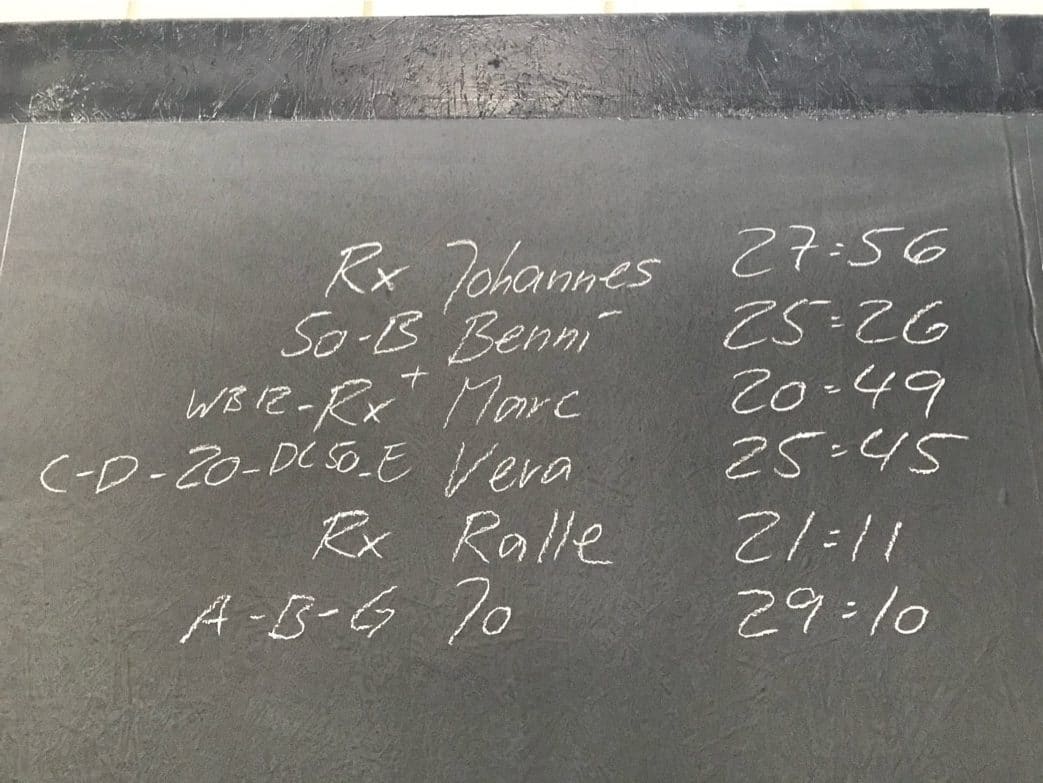 Rx Johannes 27:56
50-B Benni 25:26
WB12-Rx+ Marc 20:49
C-D-20-DC50-E Vera 25:45
Rx Ralle 21:11
A-B-G Jo 29:10